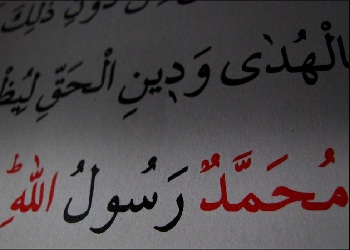 دُونِ ذٰلِكَ
بِالْهُدٰى وَدٖينِ الْحَقِّ لِيُظْ
مُحَمَّدٌ رَسُولُ اللّٰهِؕ